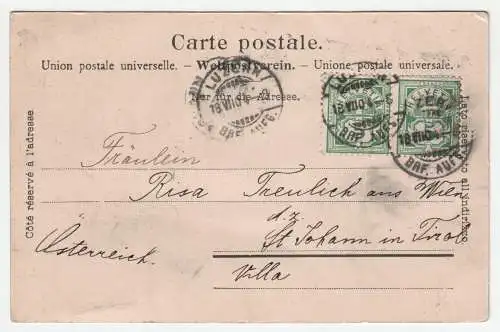 Carte postale.
Union postale universelle. — Weltpostverein. — Unione postale universale.
Nur für die Adresse.
Côté réservé à l'adresse.
Lato riservato all'indirizzo.
LUZERN
BRF. AUFG.
LUZERN
BRF. AUFG.
LUZERN
BRF. AUFG.
Fräulein
Risa Treulich aus Wien
d.z.
St Johann in Tirol
Österreich.
Villa